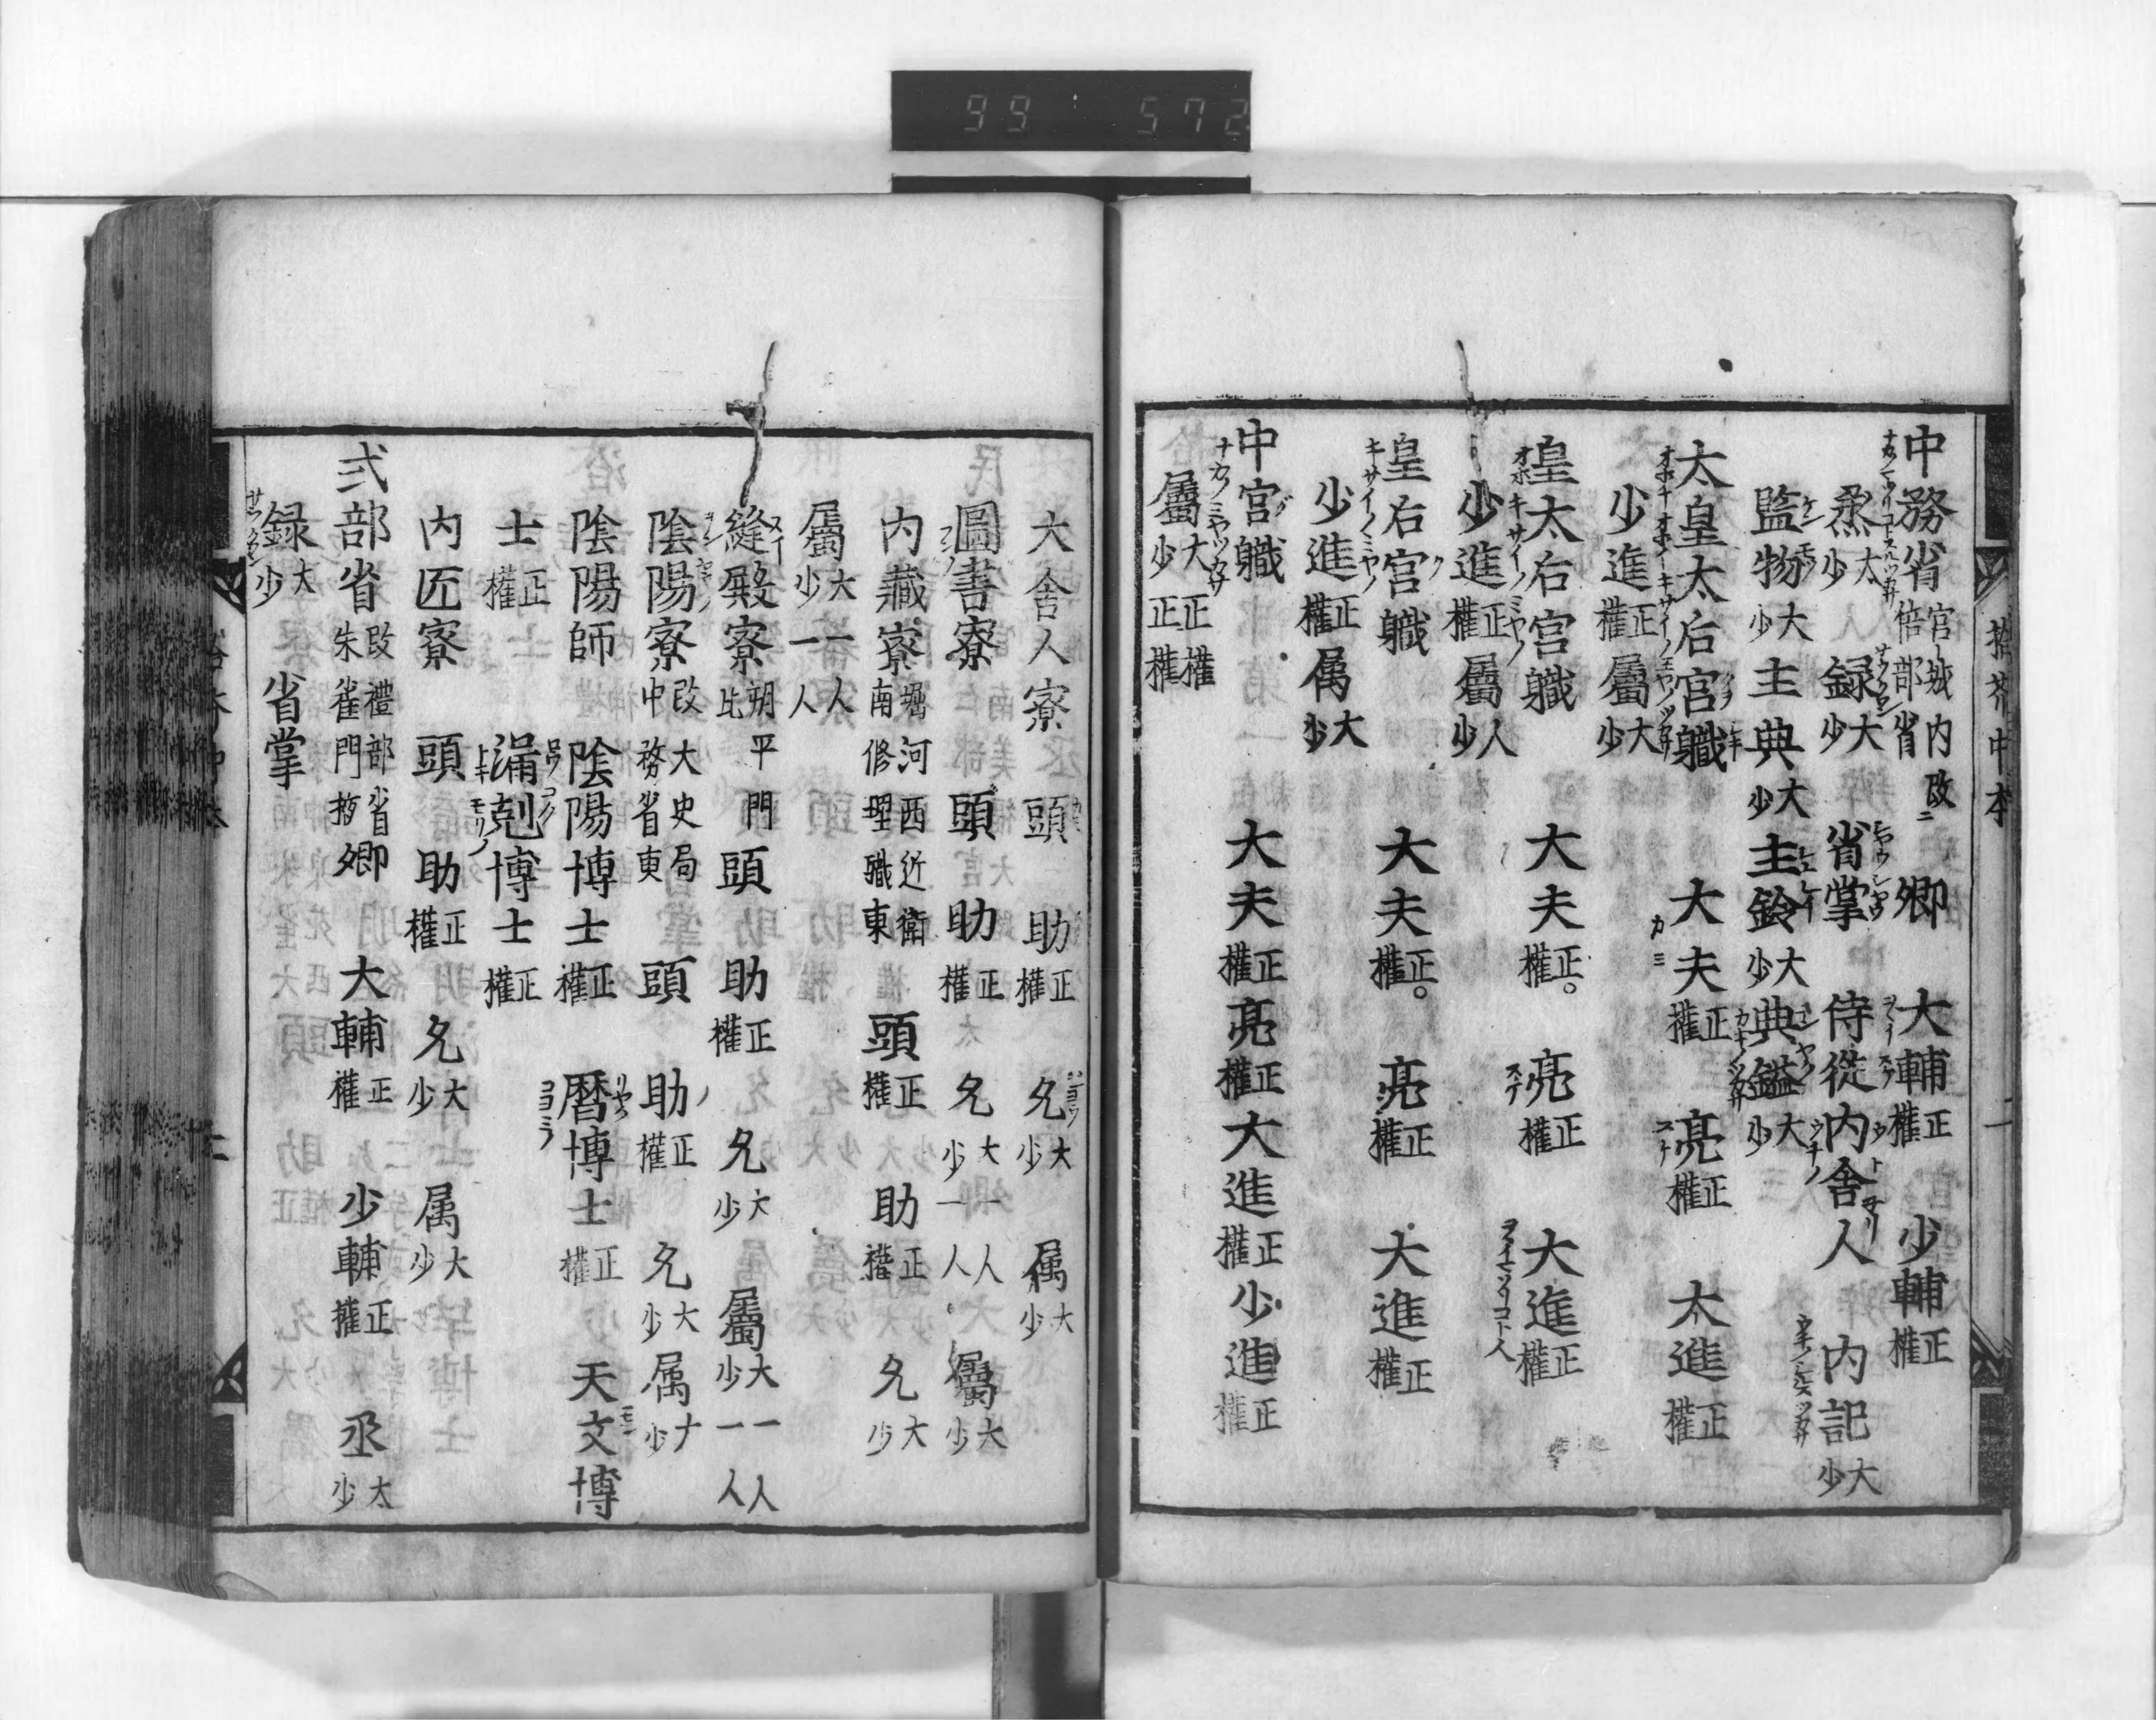 99 572
拾芥中本
中務省 官城内改二倍部省 卿 大輔 正權 少輔 正權
烝 大少 録 大少 省掌 侍從 内舎人 内記 大少
監物 大少 主典 大少 主鈴 大少 典鑰 大少
太皇太后宮職 大夫 正權 亮 正權 太進 正權
少進 正權 屬 大少
皇太后宮職 大夫 正權 亮 正權 大進 正權
少進 正權 屬 人少
皇后宮職 大夫 正權 亮 正權 大進 正權
少進 正權 属 大少
中宮職 大夫 正權 亮 正權 大進 正權 少進 正權
屬 大少 正正 權權
大舎人寮 頭 助 正權 允 大少 属 大少
圖書寮 頭 助 正權 允 大少 一人 屬 大少
内藏寮 堀河西近衛南修理職東 頭 正權 助 正權 允 大少
屬 大少 一人一人
縫殿寮 朔平門北 頭 助 正權 允 大少 屬 大少 一人一人
陰陽寮 改大史局中務省東 頭 助 正權 允 大少 属 大少
陰陽師 陰陽博士 正權 暦博士 正權 天文博
士 正權 漏剋博士 正權
内匠寮 頭 助 正權 允 大少 属 大少
式部省 改禮部省朱雀門掖 卿 大輔 正權 少輔 正權 丞 大少
録 大少 省掌